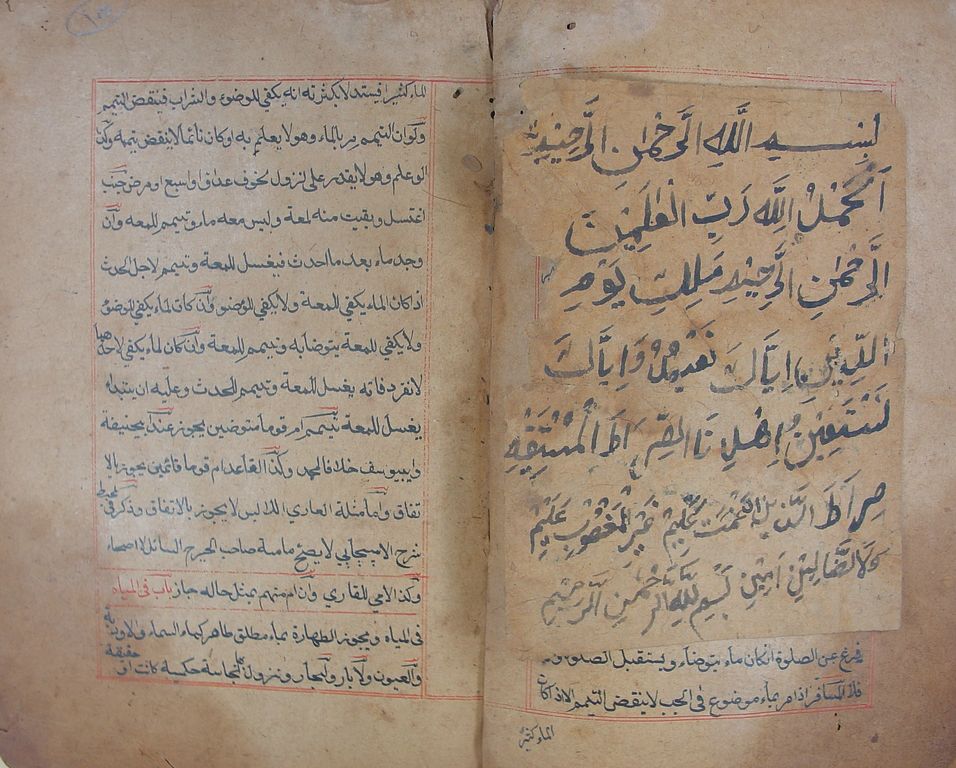 بسم الله الرحمن الرحيم
الحمد لله رب العلمين
الرحمن الرحيم ملك يوم
الدين اياك نعبد واياك
نستعين اهدنا الصراط المستقيم
صراط الذين انعمت عليهم غير المغضوب عليهم
ولا الضالين امين بسم الله الرحمن الرحيم
يفرغ عن الصلوة انكان ماء يتوضاء ويستقبل الصلوة
المسافر اذا مر بماء موضوع في الجب لا ينقض التيمم الا اذ اكان
الماء كثير
الماء كثيرا فيستدل بكثرته انه يكفي للوضوء والشراب فينقض التيمم
ولو ان التيمم مر بالماء وهو لا يعلم به او كان نائما لا ينقض تيممه وكذا
لو علم وهو لا يقدر على النزول لخوف عدو او سبع او مرض جنب
اغتسل وبقيت منه لمعة وليس معه ماء وتيمم للمعة وان
وجد ماء بعد ما احدث فيغسل للمعة وتيمم لاجل الحدث
اذ اكان الماء يكفي للمعة ولا يكفي للوضوء وان كان الماء يكفي للوضوء
ولا يكفي للمعة يتوضا به وتيمم للمعة وان كان الماء يكفي لاحدهما
لانفرد فانه يغسل للمعة وتيمم للحدث وعليه ان يبتداء
يغسل للمعة متيمم ام قوما متوضين يجوز عند ابحنيفة
وابيوسف خلافا لمحمد وان القاعد ام قوما قائمين يجوز بالا
تفاق وامامة العاري اللابس لا يجوز بالاتفاق وذكر في
شرح الاسبيجابي لا يصح مامة صاحب الجرح السائل الاصحاء
وكذ الامي للقاري وان ام منهم بمثل حاله جاز باب في المياه
في المياه ويجوز الطهارة بماء مطلق طاهر كماء السماء والاودية
والعيون والابار والبحار ويزول النجاسة حكمية كانت او
حقيقة